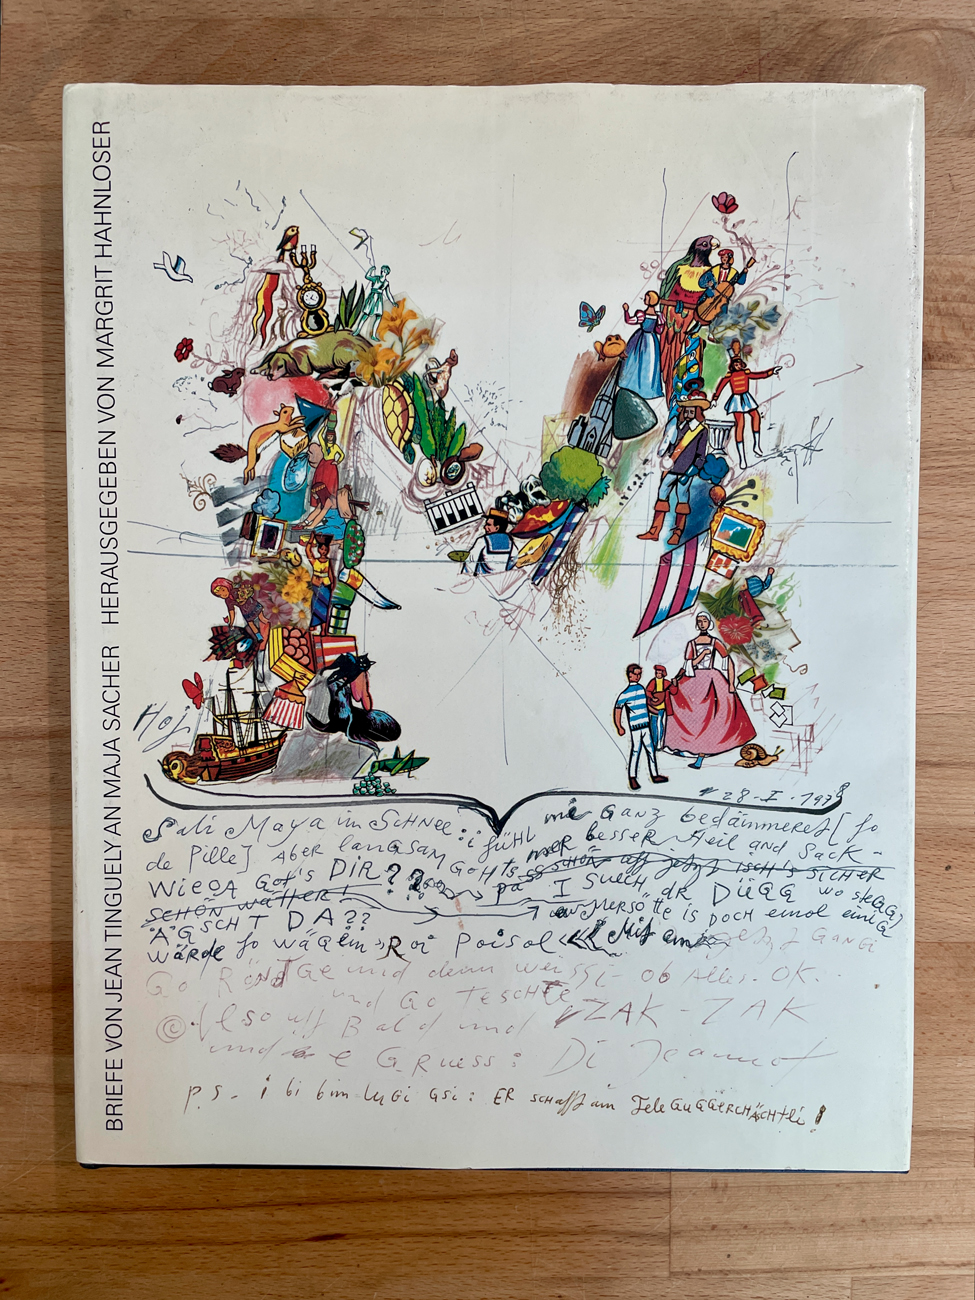 BRIEFE VON JEAN TINGUELY AN MAJA SACHER HERAUSGEGEBEN VON MARGRIT HAHNLOSER
Hoj
28-I-1978
Sali Maya im SCHNEE: i fühl mi GANZ bedämmeret [fo
de Pille] ABER langsam GoHts mer besser Heil AND SACK-
WieDA Got's DiR?? pa I SuCH dR DÜGG wo steGGt
SCHÖN WÄTTER!
ÄGSCHT DA?? is DOCH einol eini
WÄRde fo wägem Roi Poisol Mit GANGi
Go RönTge und denn weissi- ob Alles. OK.
und Go TeschTe ZAK-ZAK
© Also uff Bald und
und e GRuess: Di Jeannot
p.s. i bi bim LuGi Gsi: ER schafft am TeleGuGGERCHÄCHtli!